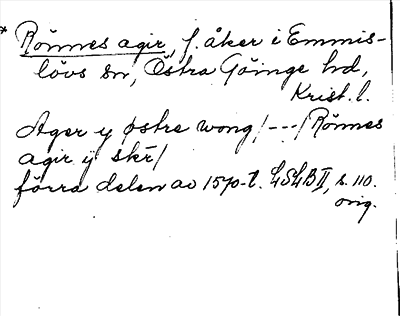 * Rönnes agir, f. åker i Emmis-
lövs sn, Östra Göinge hd,
Krist. l.
Ager y østre wong/---/Rönnes
agir y skr/
förra delen av 1570-t. LSLB II, s. 110.
orig.